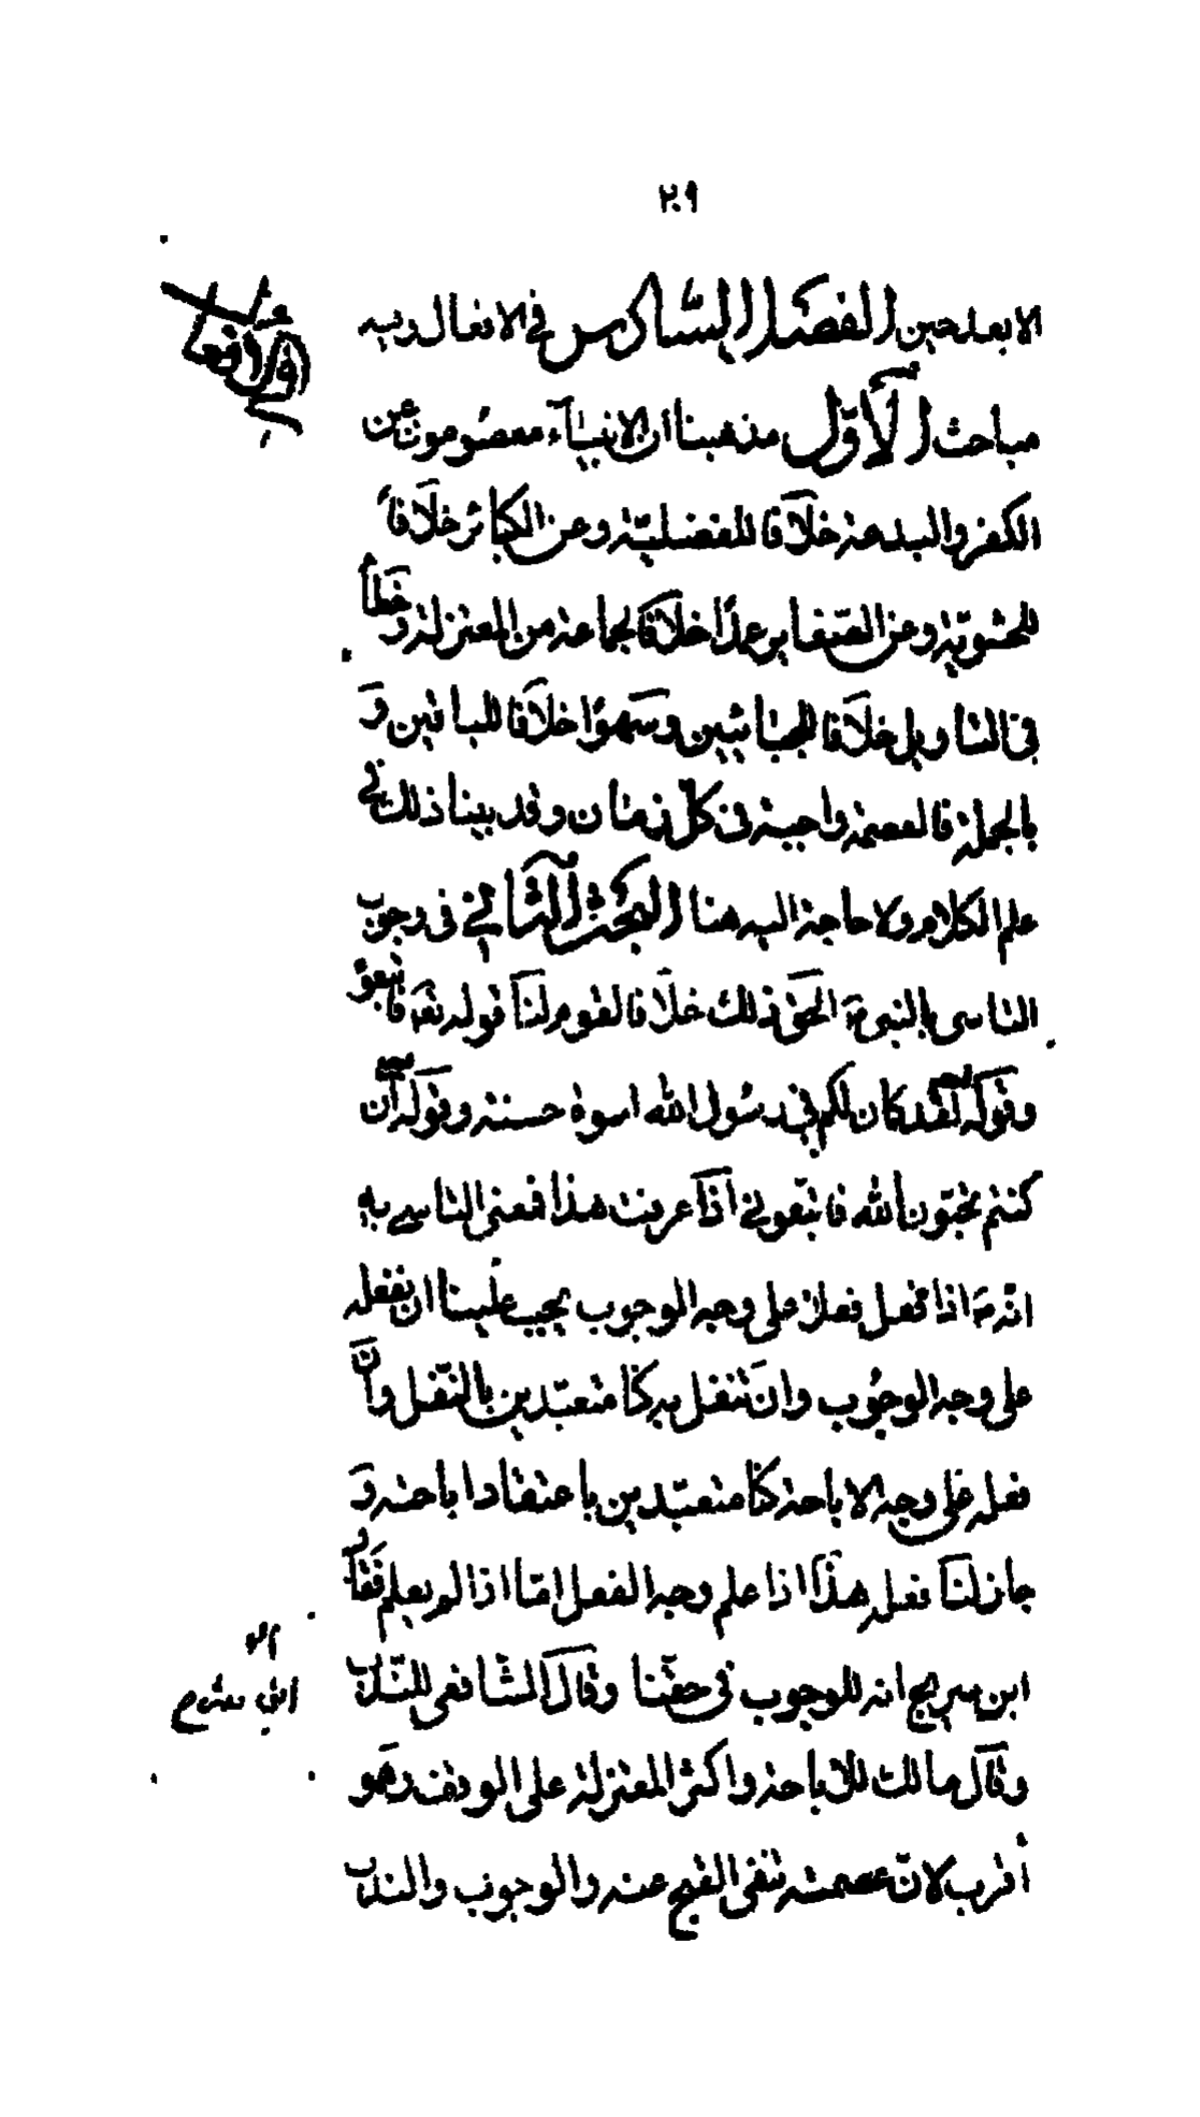 ٢٠٩
الا بعد حين الفصل السادس في الافعال وفيه
مباحث الأوّل مذهبنا ان الانبيآء معصومون عن
الكفر والبدعة خلافا للفضيليّة وعن الكبائر خلافاً
للحشويّة وعن الصّغاير عمدًا خلافا لجماعة من المعتزلة وخطأ
في التاويل خلافا للجبائيين وسهوًا خلافا للباقين وَ
بالجملة فالعصمة واجبة في كلّ زمان وقد بينا ذلك في
علم الكلام ولا حاجة اليه هنا البحث الثاني في وجوب
التاسى بالنبى ص الحق ذلك خلافا لقوم لنا قوله تعه فاتبعوه
وقوله لقد كان لكم في رسول الله اسوة حسنة وقوله ان
كنتم تحبّون الله فاتبّعوني اذا عرفت هذا فمعنى التاسي به
انّه ص اذا فعل فعلا على وجه الوجوب يجب علينا ان نفعله
على وجه الوجُوب وان تنفل به كنّا متعبّدين بالنّفل وانَّ
فعله على وجه الاباحة كنّا متعبّدين باعتقاد اباحته وَ
جاز لنا فعله هذا اذا علم وجه الفعل امّا اذا لم يعلم فقال
ابن سريج انه للوجوب في حقّنا وقال الشافعى للنّدب
وقال مالك للاباحة واكثر المعتزلة على الوقف وهو
أقرب لانّ عصمته تنفى القبيح عنه والوجوب والندب